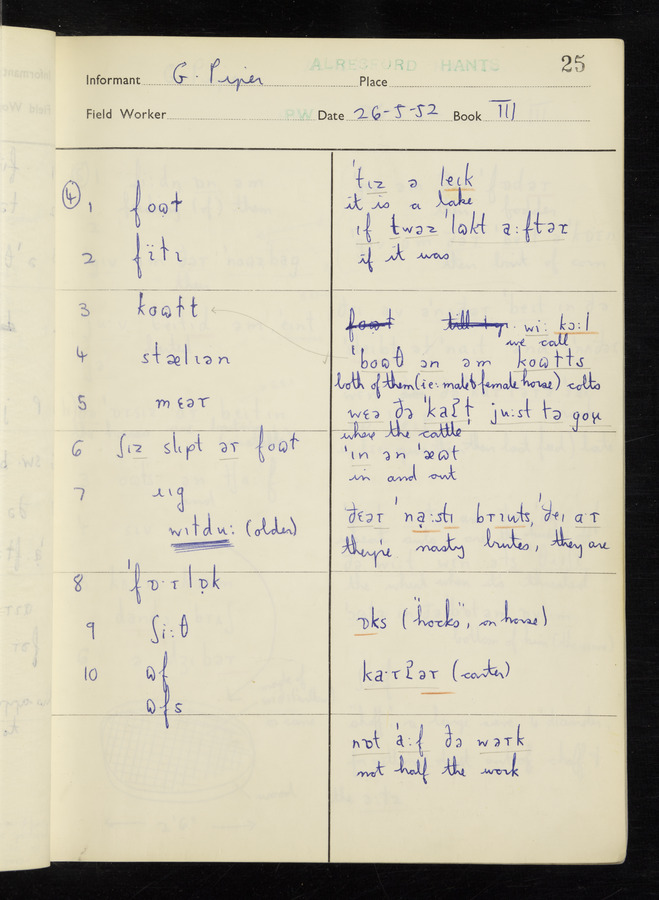 ALRESFORD HANTS
25
Informant G. Piper Place
Field Worker PW Date 26-5-52 Book III
④ 1 foɷt
2 fïtɩ
3 koɷɫt
4 stælɩən
5 mɛəɾ
6 ʃɩz slɩpt əɾ foɷt
7 ɹɩg
witdu: (older)
8 'fɒ·ɾlɒ̣k
9 ʃi:θ
10 ɷf
ɷfs
'tɩz ə leɩk
it is a lake
ɩf twəz 'lɷkt a:ftəɾ
if it was
wi: kɔ:l
we call
'boɷθ ən əm koɷɫts
both of them (i.e: male & female horse) colts
wɛə ðə 'kaʔɫ ju:st tə goɷ
where the cattle
'ɩn ən 'æɷt
in and out
ðɛəɾ 'nạ:stɩ bɾɩuts, 'ðeɩ aɾ
they're nasty brutes, they are
ɒks ("hocks", on horse)
ka·ɾʔəɾ (carter)
nɒt 'a:f ðə wəɾk
not half the work